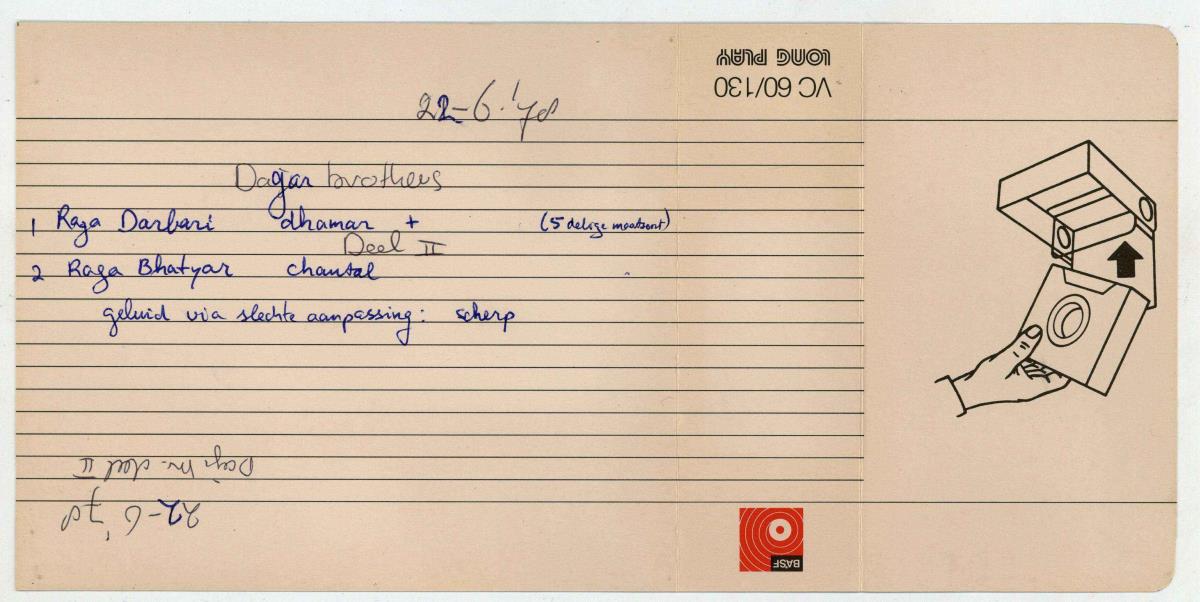 22-6-'78
Dagar brothers
1 Raga Darbari dhamar + (5 delige maatsoort)
Deel II
2 Raga Bhatyar chautal
geluid via slechte aanpassing: scherp
VC 60/130
LONG PLAY
BASF
22-6 '78
deel II